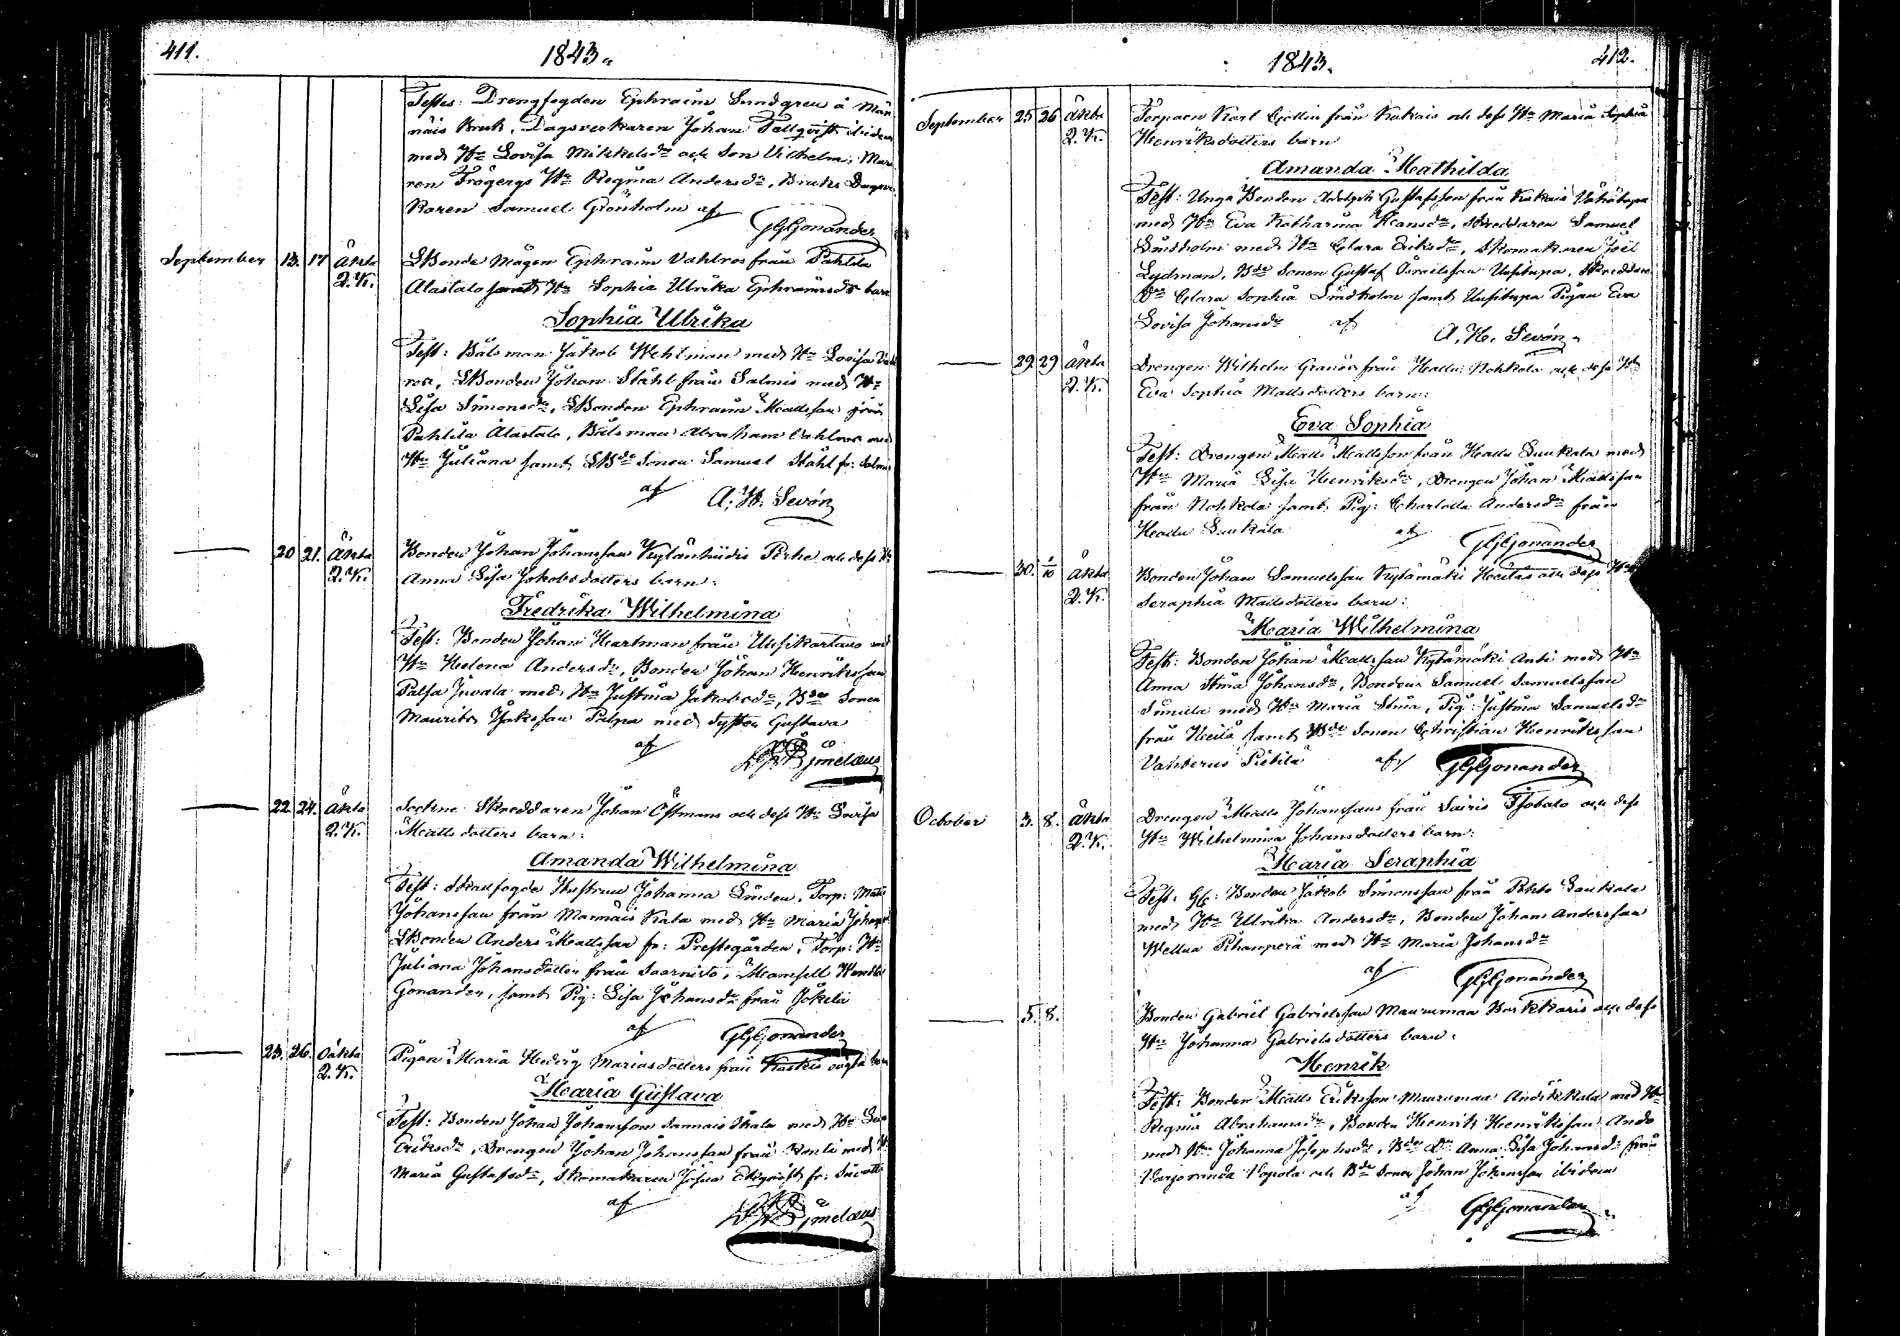 411.
1843.
Testes: Drengfogden Ephraim Sundgren å
näis Bruk, Dagsverkaren Johan Tallqvist ibidem
med Hu Lovisa Mikkelsdr och Son Vilhelm,
Hu Regina Andersdr, Bruks
karen Samuel Grönholm af
GGGonander
September 13. 17 Äkta LBonde Mågen Ephraim Vahlros från Pahlila
2. K. Alastalo samt Hu Sophia Ulrika Ephraimsdrs barn
Sophia Ulrika
Test: Båtsman Jakob Wehlman med Hu Lovisa
ros, LBonden Johan Ståhl från Salmis med Hu
Lisa Simonsdr, LBonden Ephraim Mattsson från
Pahlila Alastalo, Båtsman Abraham Vahlros med
Hu Juliana samt LBde Sonen Samuel Ståhl fr: Salmis
af A. H. Sevón
— 20 21. Äkta Bonden Johan Johansson Kylänhiidis Perho och dess Hu
2. K. Anna Lisa Jakobsdotters barn:
Fredrika Wilhelmina
Test: Bonden Johan Hartman från Uusikartano med
Hu Helena Andersdr, Bonden Johan Henriksson
Palsa Juvala med Hu Justina Jakobsdr, Bde Sonen
Maurits Isaksson Pulpa med Syster Gustava
af
— 22 24. Äkta Sockne Skreddaren Johan Östmans och dess Hu Lovisa
2. K. Mattsdotters barn:
Amanda Wilhelmina
Test: Skallfogde Hustrun Johanna Linden, Torp: Matts
Johansson från Mannäis Kata med Hu Maria
LBonden Anders Mattsson fr: Prestegården, Torp: Hu
Juliana Johansdotter från Saarnisto, Mamsell
Gonander, samt Pig: Lisa Johansdr från Jokela
af GGGonander
— 23. 26. Oäkta Pigan Maria Hedvig Mariasdotters från Kuskis oägta barn
2. K.
Maria Gustava
Test: Bonden Johan Johansson Sannais Skala med Hu
Eriksdr, Drengen Johan Johansson från med Hu
Maria Gustafsdr, Skomakaren Josua Ekqvist fr:
af
1843.
412.
September 25 26 Äkta Torparn Karl Gottlin från Kukais och dess Hu Maria Sophia
2. K. Henriksdotters barn
Amanda Mathilda
Test: Unga Bonden Adolph Gustafsson från Kukais Vähätupa
med Hu Eva Katharina Hansdr, Skreddaren Samuel
Lindholm med Hu Clara Eriksdr, Skomakaren Joel
Lydman, Bde Sonen Gustaf Israelsson Uusitupa,
Dr Clara Sophia Lindholm samt Uusitupa Pigan Eva
Lovisa Johansdr af A. H. Sevón
— 29 29 Äkta Drengen Wilhelm Granös från Hallu Nohkola och dess Hu
2. K. Eva Sophia Mattsdotters barn:
Eva Sophia
Test: Drengen Matts Mattsson från Hallu Suukala med
Hu Maria Lisa Henriksdr, Drengen Johan Mattsson
från Nohkola samt Pig: Charlotta Andersdr från
Hallu Suukala af GGGonander
— 30. 1/10 Äkta Bonden Johan Samuelsson Kylämäki Heikilä och dess Hu
2. K. Seraphia Mattsdotters barn:
Maria Wilhelmina
Test: Bonden Johan Mattsson Kylämäki Anti med Hu
Anna Stina Johansdr, Bonden Samuel Samuelsson
Simila med Hu Maria Stina, Pig: Justina Samuelsdr
från samt Bde Sonen Christian Henriksson
Vanterus Pietilä af GGGonander
October 3. 8. Äkta Drengen Matts Johanssons från Sairis Isotalo och dess
2. K. Hu Wilhelmina Johansdotters barn:
Maria Seraphia
Test: Gl: Bonden Jakob Simonsson från Pekko Saukola
med Hu Ulrika Andersdr, Bonden Johan Andersson
Wellua Pihanperä med Hu Maria Johansdr
af GGGonander
— 5. 8. Bonden Gabriel Gabrielsson Maurumaa Buskkaris och dess
Hu Johanna Gabrielsdotters barn:
Henrik
Test: Bonden Matts Eriksson Maurumaa Andikkala med Hu
Regina Abrahamsdr, Bonden Henrik Henriksson Ando
med Hu Johanna Josephsdr, Bde Dr Anna Lisa Johansdr från
Varjoranda Vapola och Bde Sonen Johan Johansson ibidem
af GGGonander